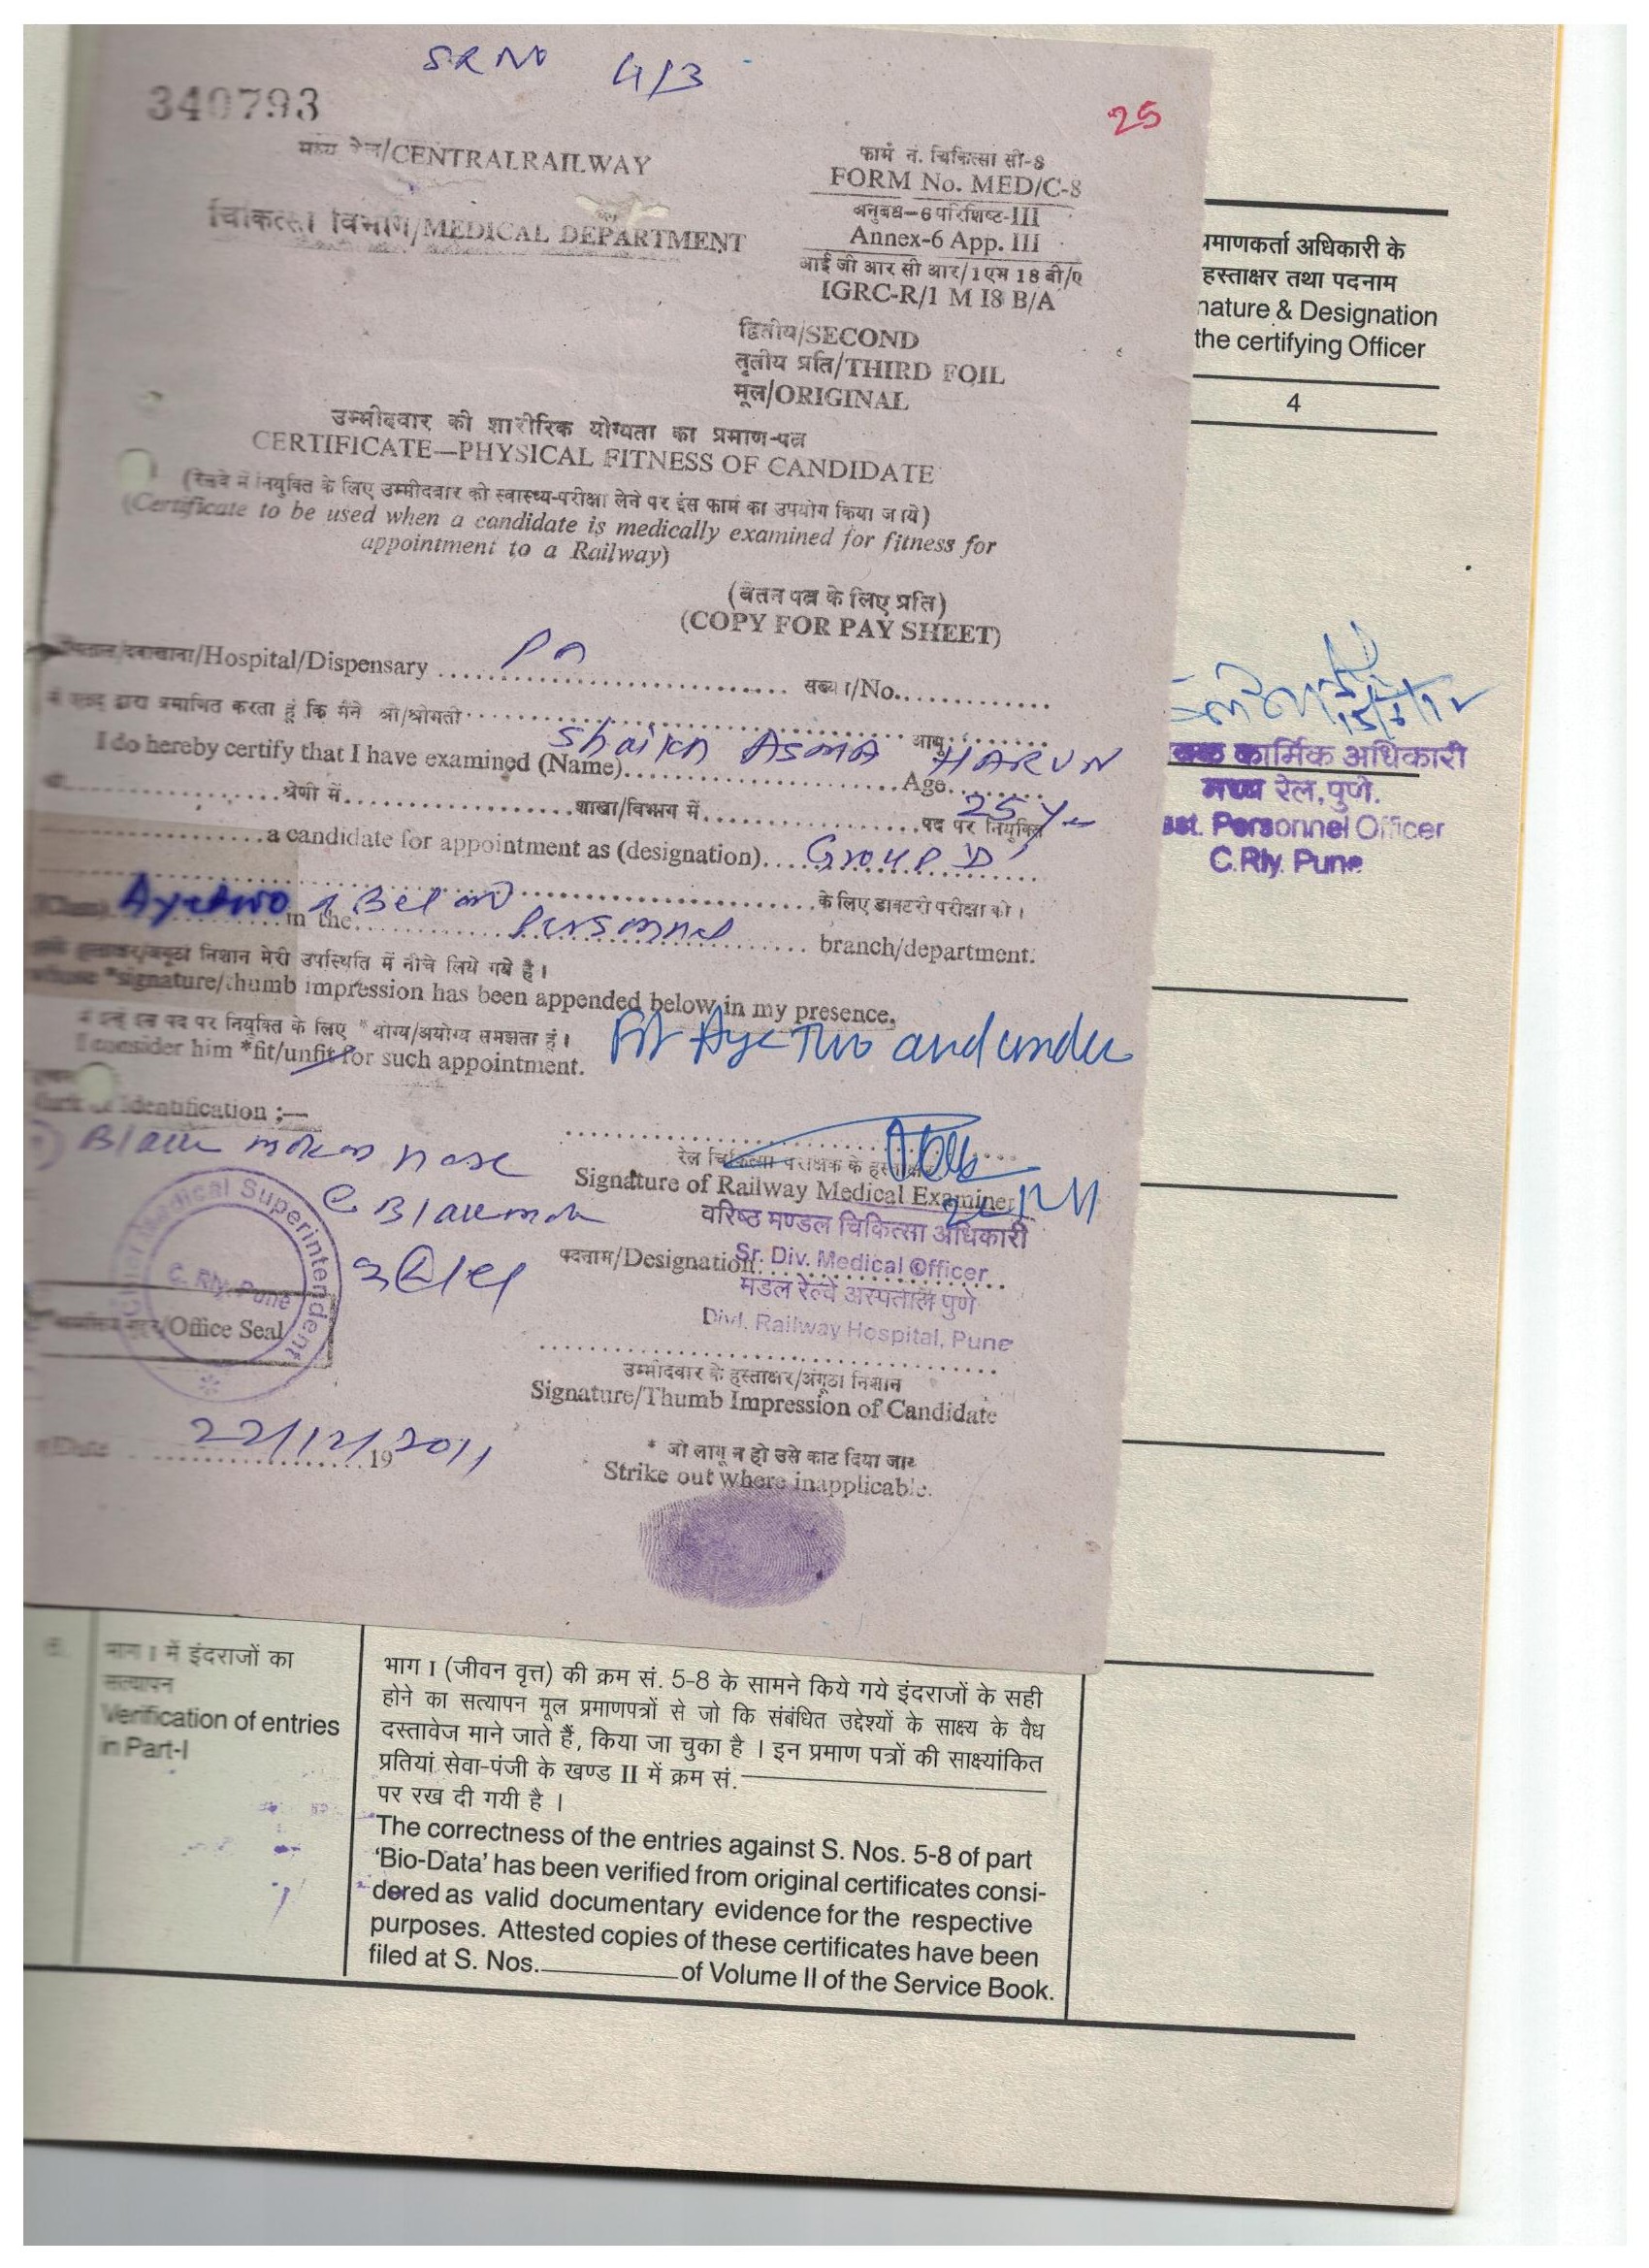 SR NO 4/3
340793
25
मध्य रेल/CENTRALRAILWAY
चिकित्सा विभाग/MEDICAL DEPARTMENT
फार्म नं. चिकित्सा सी-8
FORM No. MED/C-8
अनुबंध-6 परिशिष्ट-III
Annex-6 App. III
आई जी आर सी आर/1 एम 18 बी/ए
IGRC-R/1 M I8 B/A
द्वितीय/SECOND
तृतीय प्रति/THIRD FOIL
मूल/ORIGINAL
उम्मीदवार की शारीरिक योग्यता का प्रमाण-पत्र
CERTIFICATE—PHYSICAL FITNESS OF CANDIDATE
(रेलवे में नियुक्ति के लिए उम्मीदवार की स्वास्थ्य-परीक्षा लेने पर इस फार्म का उपयोग किया जाये)
(Certificate to be used when a candidate is medically examined for fitness for
appointment to a Railway)
(वेतन पत्र के लिए प्रति)
(COPY FOR PAY SHEET)
/Hospital/Dispensary ........ सख्या/No.........
द्वारा प्रमाणित करता हूं कि मैंने श्री/श्रीमती ........ आयु ........
I do hereby certify that I have examined (Name) Shaikh ASMA HARUN Age 25 Y
........ श्रेणी में ........ शाखा/विभाग में ........ पद पर नियुक्ति
........ a candidate for appointment as (designation) .... Group 'D'
........ के लिए डाक्टरी परीक्षा की ।
(Class) Ayetwo & Below in the Personnel branch/department.
निशान मेरी उपस्थिति में नीचे लिये गये है ।
whose *signature/thumb impression has been appended below in my presence,
पद पर नियुक्ति के लिए *योग्य/अयोग्य समझता हूं ।
I consider him *fit/unfit for such appointment. Fit Aye Two and under
Mark of Identification :—
Black mole on nose
Black mole
रेल चिकित्सा परीक्षक के हस्ताक्षर
Signature of Railway Medical Examiner
वरिष्ठ मण्डल चिकित्सा अधिकारी
पदनाम/Designation
Sr. Div. Medical Officer
मंडल रेल्वे अस्पताल पुणे
Divl. Railway Hospital, Pune
Medical Superintendent
C. Rly. Pune
/Office Seal
उम्मीदवार के हस्ताक्षर/अंगूठा निशान
Signature/Thumb Impression of Candidate
/Date 22/12/ 19 2011
* जो लागू न हो उसे काट दिया जाए
Strike out where inapplicable.
प्रमाणकर्ता अधिकारी के
हस्ताक्षर तथा पदनाम
nature & Designation
the certifying Officer
4
कार्मिक अधिकारी
मध्य रेल, पुणे.
sst. Personnel Officer
C.Rly. Pune
भाग I में इंदराजों का
सत्यापन
Verification of entries
in Part-I
भाग I (जीवन वृत्त) की क्रम सं. 5-8 के सामने किये गये इंदराजों के सही
होने का सत्यापन मूल प्रमाणपत्रों से जो कि संबंधित उद्देश्यों के साक्ष्य के वैध
दस्तावेज माने जाते हैं, किया जा चुका है । इन प्रमाण पत्रों की साक्ष्यांकित
प्रतियां सेवा-पंजी के खण्ड II में क्रम सं.
पर रख दी गयी है ।
The correctness of the entries against S. Nos. 5-8 of part
‘Bio-Data’ has been verified from original certificates consi-
dered as valid documentary evidence for the respective
purposes. Attested copies of these certificates have been
filed at S. Nos. of Volume II of the Service Book.